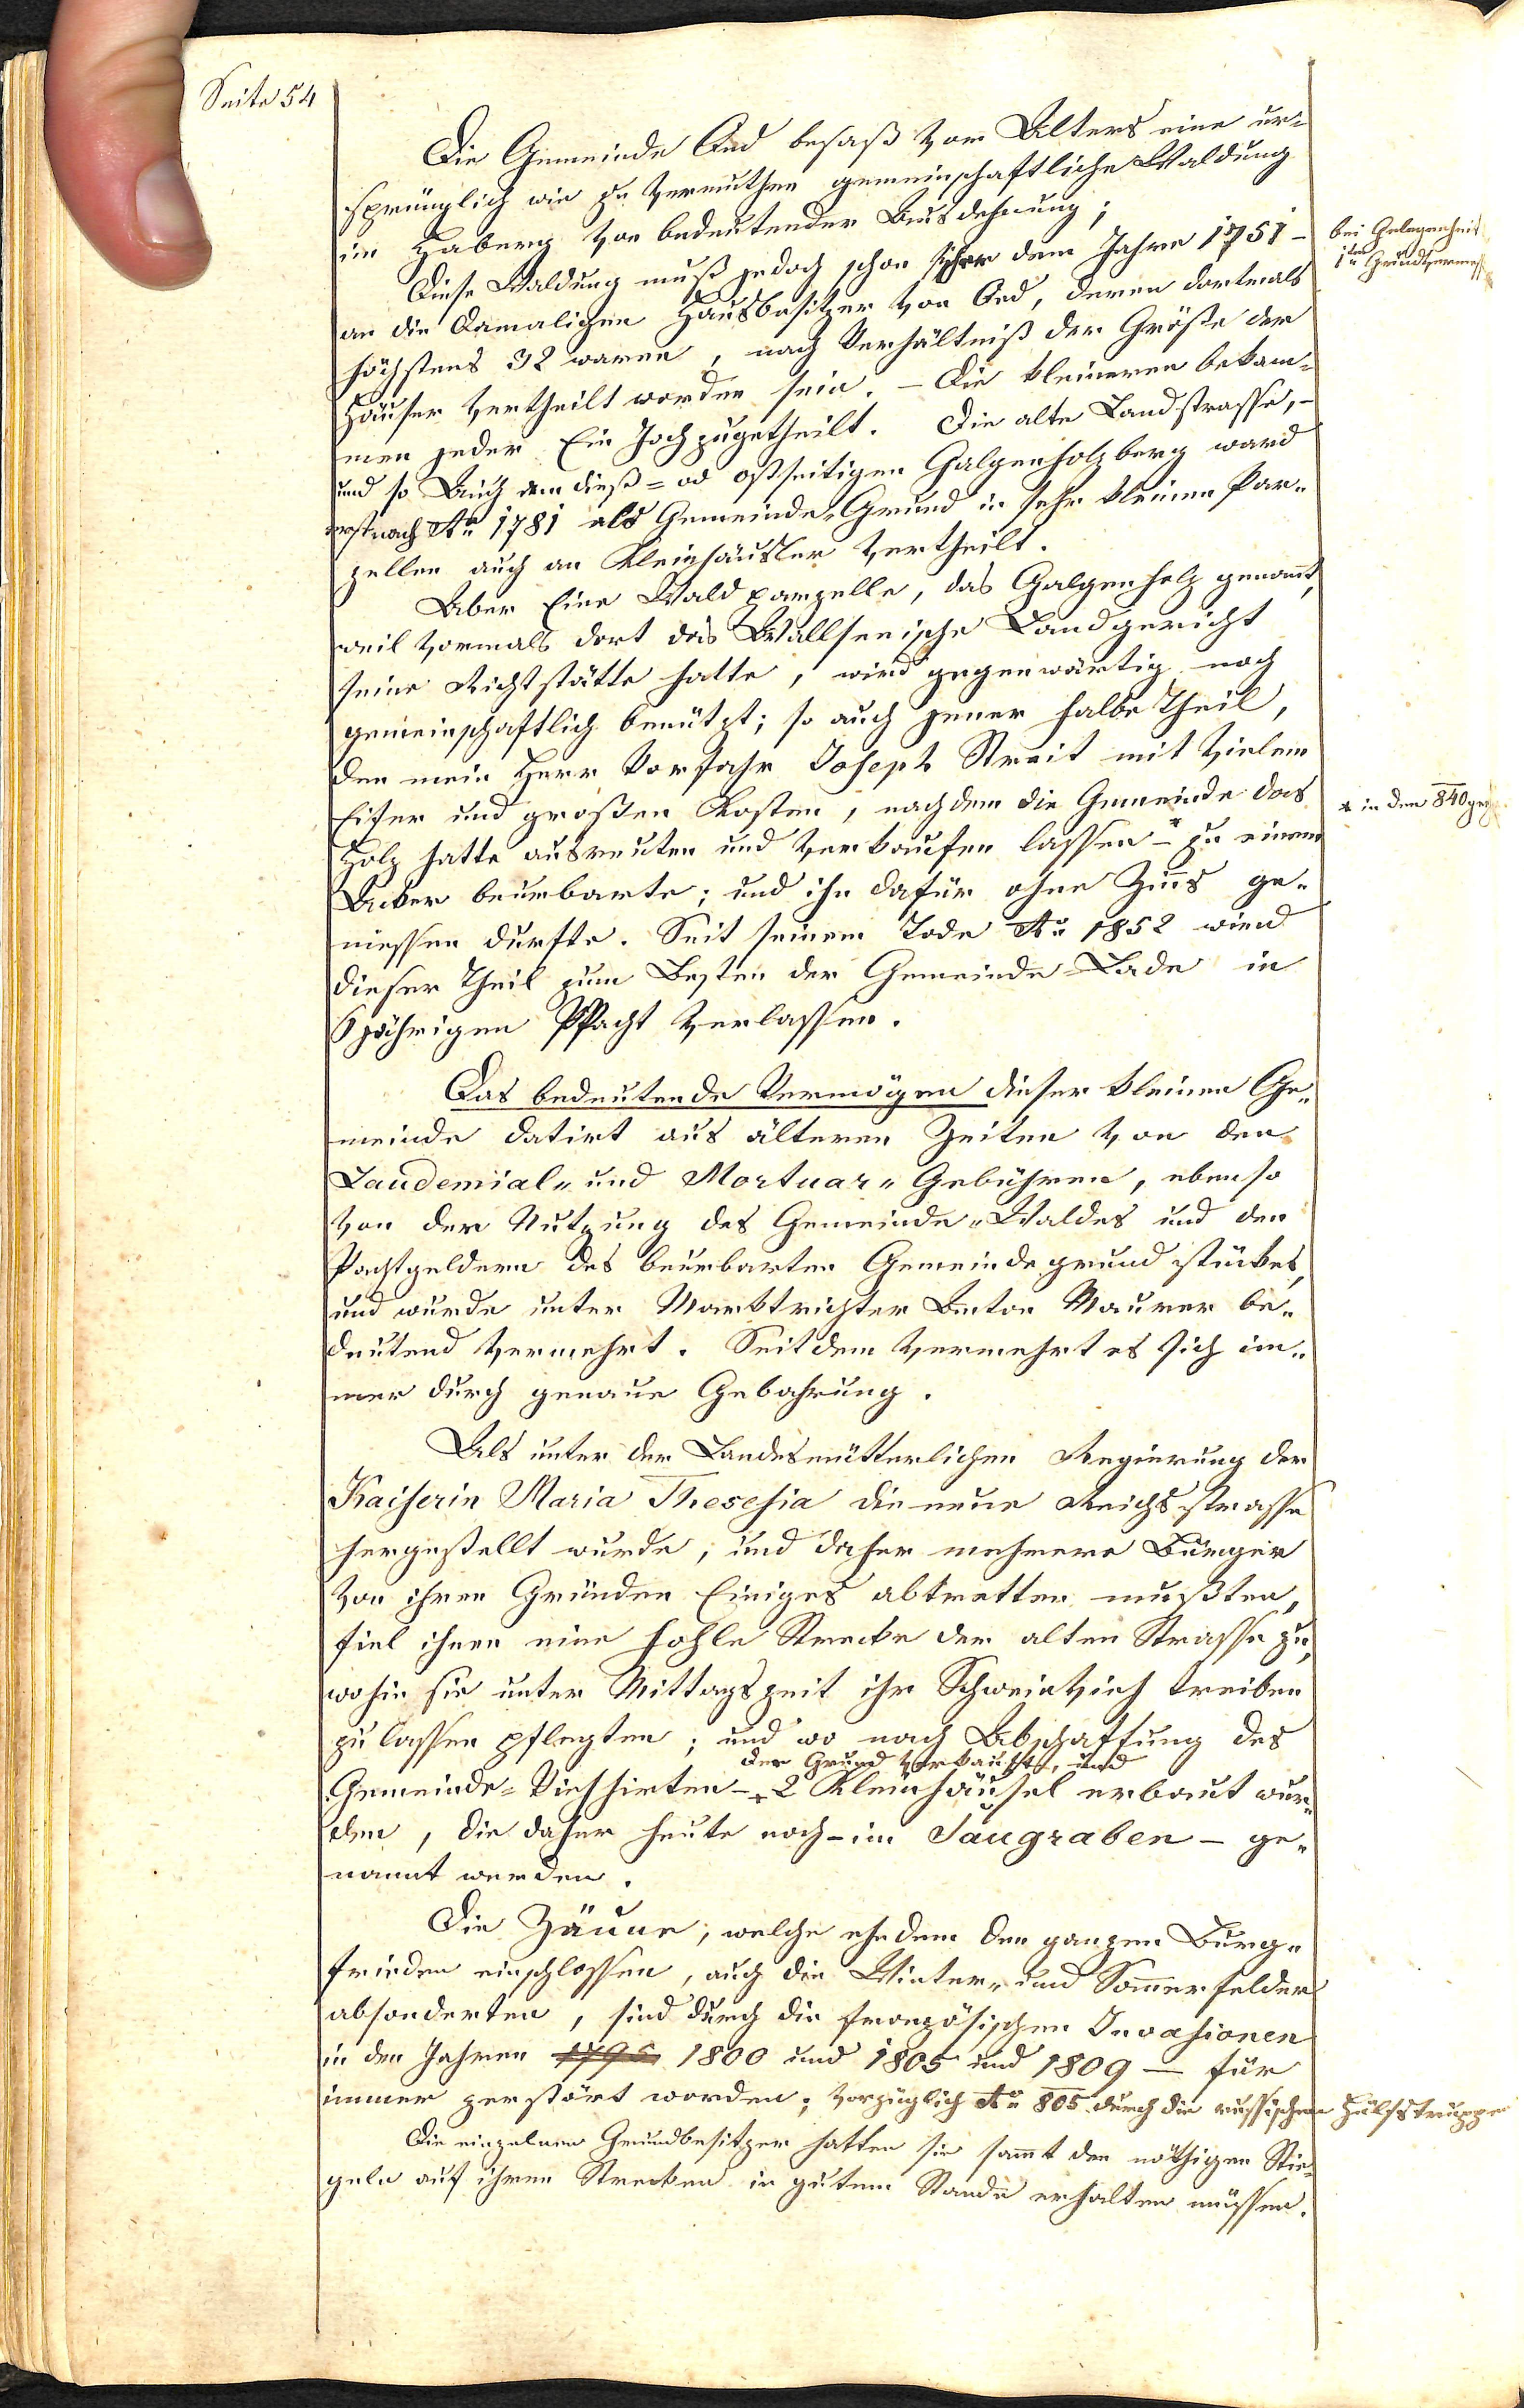 Seite 54
Die Gemeinde Oed besaß von Alters eine ur=
sprünglich wie zu vermuthen gemeinschaftliche Waldung
im Haberg von bedeutender Ausdehnung;
Diese Waldung muß jedoch schon dem Jahre 1751 -
bei Gelegenheit
1ten Grundvermess
an die damaligen Hausbesitzer von Oed, deren dortmals
höchstens 32 waren, nach Verhältniß der Größe der
Häuser vertheilt worden sein. - Die kleineren bekam=
men jeder Ein Joch zugetheilt. Die alte Landstrasse, -
und so Auch dem dieß= od ostseitigen Galgenholzberg ward
erst nach Ao 1781 als Gemeinde-Grund in sehr kleinen Par=
zellen auch an Kleinhäusler vertheilt.
Aber Eine Waldparzelle, das Galgenholz genannt,
weil vormals dort das Wallseeische Landgericht
seine Richtstätte hatte, wird gegenwärtig noch
gemeinschaftlich benützt; so auch jener halbe Theil,
den mein Herr Vorfahr Joseph Streit mit vielem
Eifer und großen Kosten, nachdem die Gemeinde das
* in den 840ger
Holz hatte ausreuten und verkaufen lassen -* zu einem
Acker beurbarte; und ihn dafür ohne Zins ge=
niessen durfte. Seit seinem Tode Ao 1852 wird
dieser Theil zum Besten der Gemeinde-Lade in
6jährigen Pacht verlassen.
Das bedeutende Vermögen dieser kleinen Ge=
meinde datirt aus älteren Zeiten von den
Laudemial= und Mortuar= Gebühren, ebenso
von der Nutzung des Gemeinde=Waldes und den
Pachtgeldern des beurbarten Gemeindegrundstückes,
und wurde unter Marktrichter Anton Maurer be=
deutend vermehrt. Seitdem vermehrt es sich im=
mer durch genaue Gebahrung.
Als unter der Landesmütterlichen Regierung der
Kaiserin Maria Theresia die neue Reichsstrasse
hergestellt wurde, und daher mehrere Bürger
von ihren Gründen Einiges abtretten mußten,
fiel ihnen eine hohle Strecke der alten Strasse zu,
wohin sie unter Mittagszeit ihr Schweinvieh treiben
zu lassen pflegten; und wo nach Abschaffung des
der Grund verkauft, und
Gemeinde=Viehhirten -+ 2 Kleinhäusel erbaut wur=
den, die daher heute noch - im Saugraben - ge=
nannt werden.
Die Zäune, welche ehedem den ganzen Burg=
frieden einschlossen, auch die Winter= und Sommerfelder
absonderten, sind durch die französischen Invasionen
in den Jahren 1795 1800 und 1805 und 1809 - für
immer zerstört worden; vorzüglich Ao 805 durch die russischen Hülfstruppen
Die einzelnen Grundbesitzer hatten sie sammt den nöthigen Stie=
geln auf ihren Strecken in gutem Stande erhalten müssen.